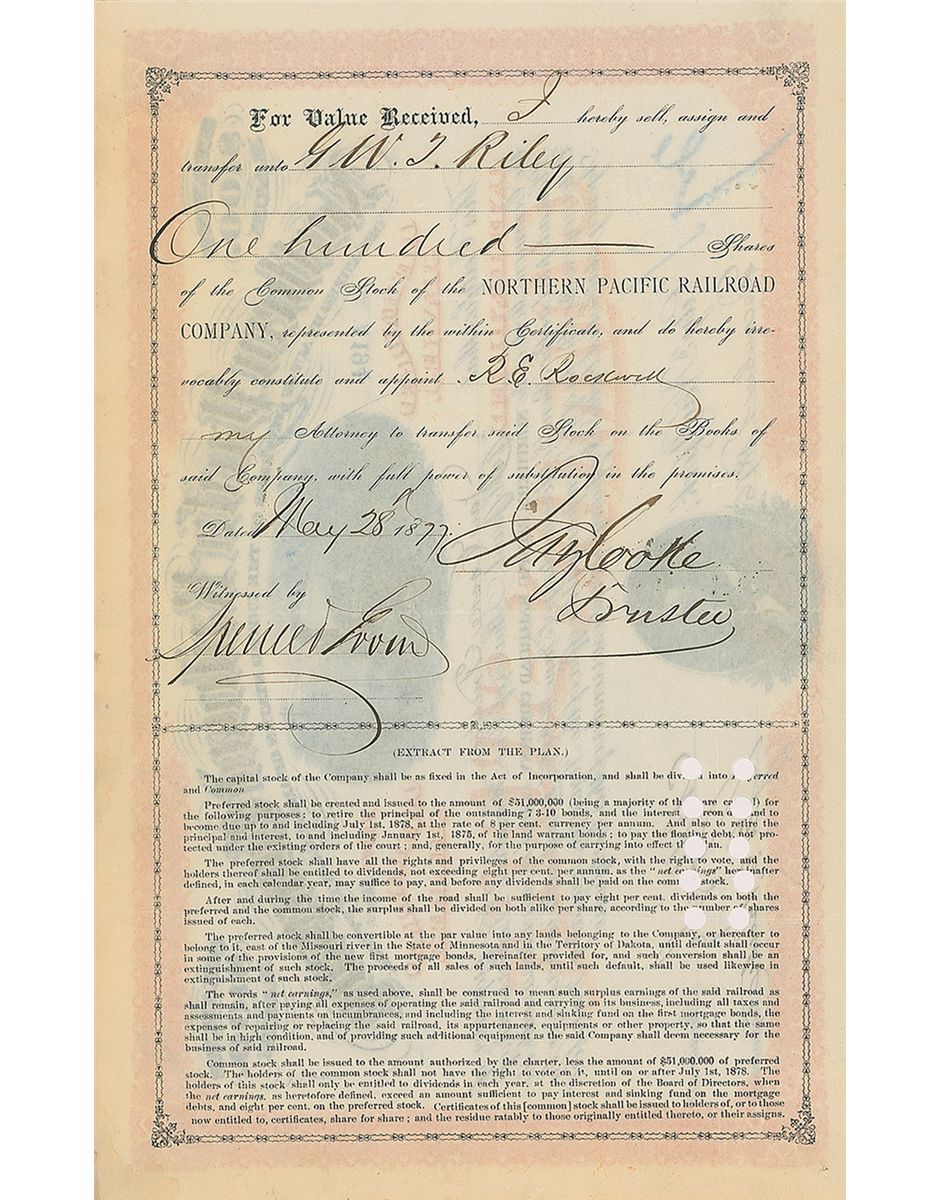 For Value Received, I hereby sell, assign and
transfer unto G W. T. Riley
One hundred Shares
of the Common Stock of the NORTHERN PACIFIC RAILROAD
COMPANY, represented by the within Certificate, and do hereby irre-
vocably constitute and appoint R. E. Rockwell
my Attorney to transfer said Stock on the Books of
said Company, with full power of substitution in the premises.
Dated May 28th 1877. Jay Cooke
Trustee
Witnessed by
(EXTRACT FROM THE PLAN.)
The capital stock of the Company shall be as fixed in the Act of Incorporation, and shall be into
and Common
Preferred stock shall be created and issued to the amount of $51,000,000 (being a majority of for
the following purposes: to retire the principal of the outstanding 7 3-10 bonds, and the interest and to
become due up to and including July 1st, 1878, at the rate of 8 per cent. currency per annum. And also to retire the
principal and interest, to and including January 1st, 1875, of the land warrant bonds; to pay the floating debt, not pro-
tected under the existing orders of the court; and, generally, for the purpose of carrying into effect plan.
The preferred stock shall have all the rights and privileges of the common stock, with the right to vote, and the
holders thereof shall be entitled to dividends, not exceeding eight per cent. per annum, as the "net earnings" hereinafter
defined, in each calendar year, may suffice to pay, and before any dividends shall be paid on the common stock.
After and during the time the income of the road shall be sufficient to pay eight per cent. dividends on both the
preferred and the common stock, the surplus shall be divided on both alike per share, according to the number of shares
issued of each.
The preferred stock shall be convertible at the par value into any lands belonging to the Company, or hereafter to
belong to it, east of the Missouri river in the State of Minnesota and in the Territory of Dakota, until default shall occur
in some of the provisions of the new first mortgage bonds, hereinafter provided for, and such conversion shall be an
extinguishment of such stock. The proceeds of all sales of such lands, until such default, shall be used likewise in
extinguishment of such stock.
The words "net earnings," as used above, shall be construed to mean such surplus earnings of the said railroad as
shall remain, after paying all expenses of operating the said railroad and carrying on its business, including all taxes and
assessments and payments on incumbrances, and including the interest and sinking fund on the first mortgage bonds, the
expenses of repairing or replacing the said railroad, its appurtenances, equipments or other property, so that the same
shall be in high condition, and of providing such additional equipment as the said Company shall deem necessary for the
business of said railroad.
Common stock shall be issued to the amount authorized by the charter, less the amount of $51,000,000 of preferred
stock. The holders of the common stock shall not have the right to vote on it, until on or after July 1st, 1878. The
holders of this stock shall only be entitled to dividends in each year, at the discretion of the Board of Directors, when
the net earnings, as heretofore defined, exceed an amount sufficient to pay interest and sinking fund on the mortgage
debts, and eight per cent. on the preferred stock. Certificates of this [common] stock shall be issued to holders of, or to those
now entitled to, certificates, share for share; and the residue ratably to those originally entitled thereto, or their assigns.